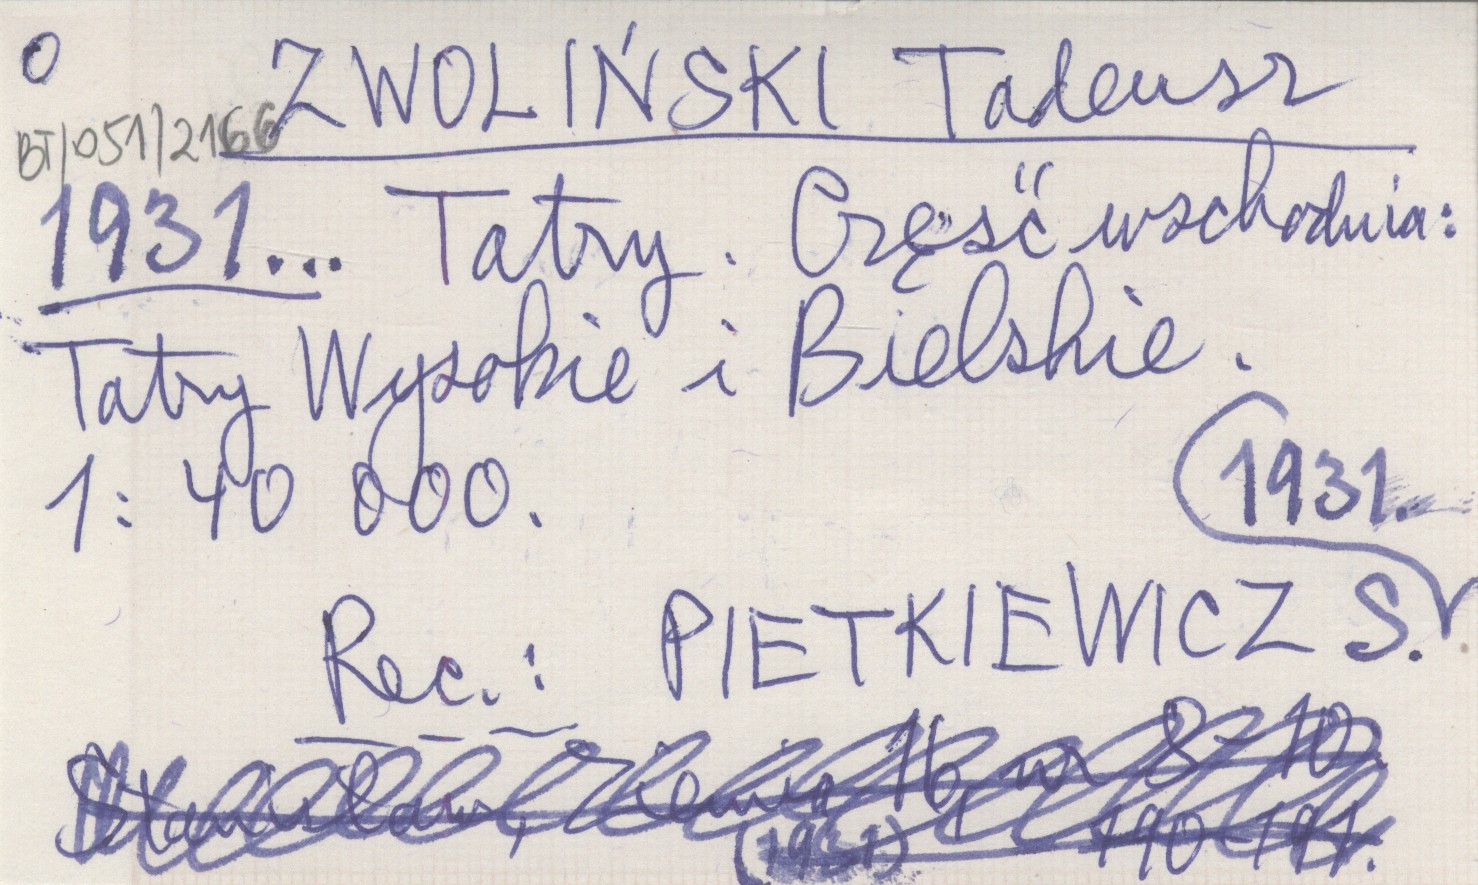 O
ZWOLIŃSKI Tadeusz
BT/051/2166
1931... Tatry. Część wschodnia:
Tatry Wysokie i Bielskie.
1: 40 000.
1931.
Rec.: PIETKIEWICZ S.
Stanisław, Ziemia 16, nr 8-10.
(1931) 190-191.